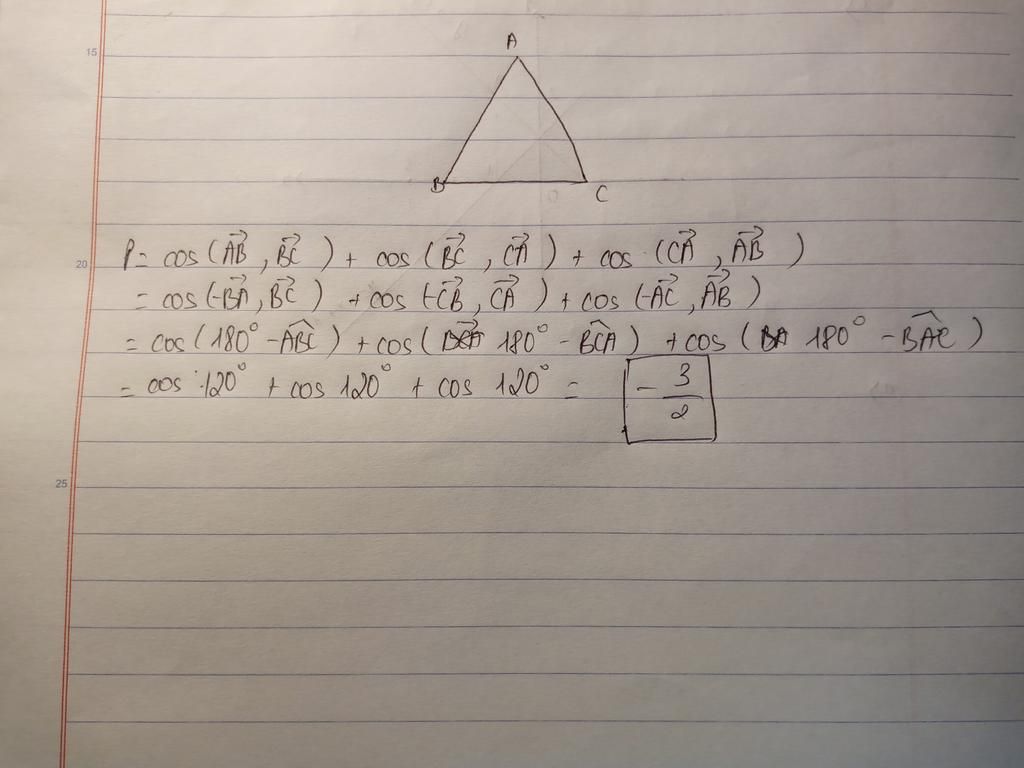 15
A
B
C
P = cos (\vec{AB}, \vec{BC}) + cos (\vec{BC}, \vec{CA}) + cos (\vec{CA}, \vec{AB})
20
= cos (-\vec{BA}, \vec{BC}) + cos (-\vec{CB}, \vec{CA}) + cos (-\vec{AC}, \vec{AB})
= cos (180° - \widehat{ABC}) + cos (180° - \widehat{BCA}) + cos (180° - \widehat{BAC})
= cos 120° + cos 120° + cos 120° = -\frac{3}{2}
25